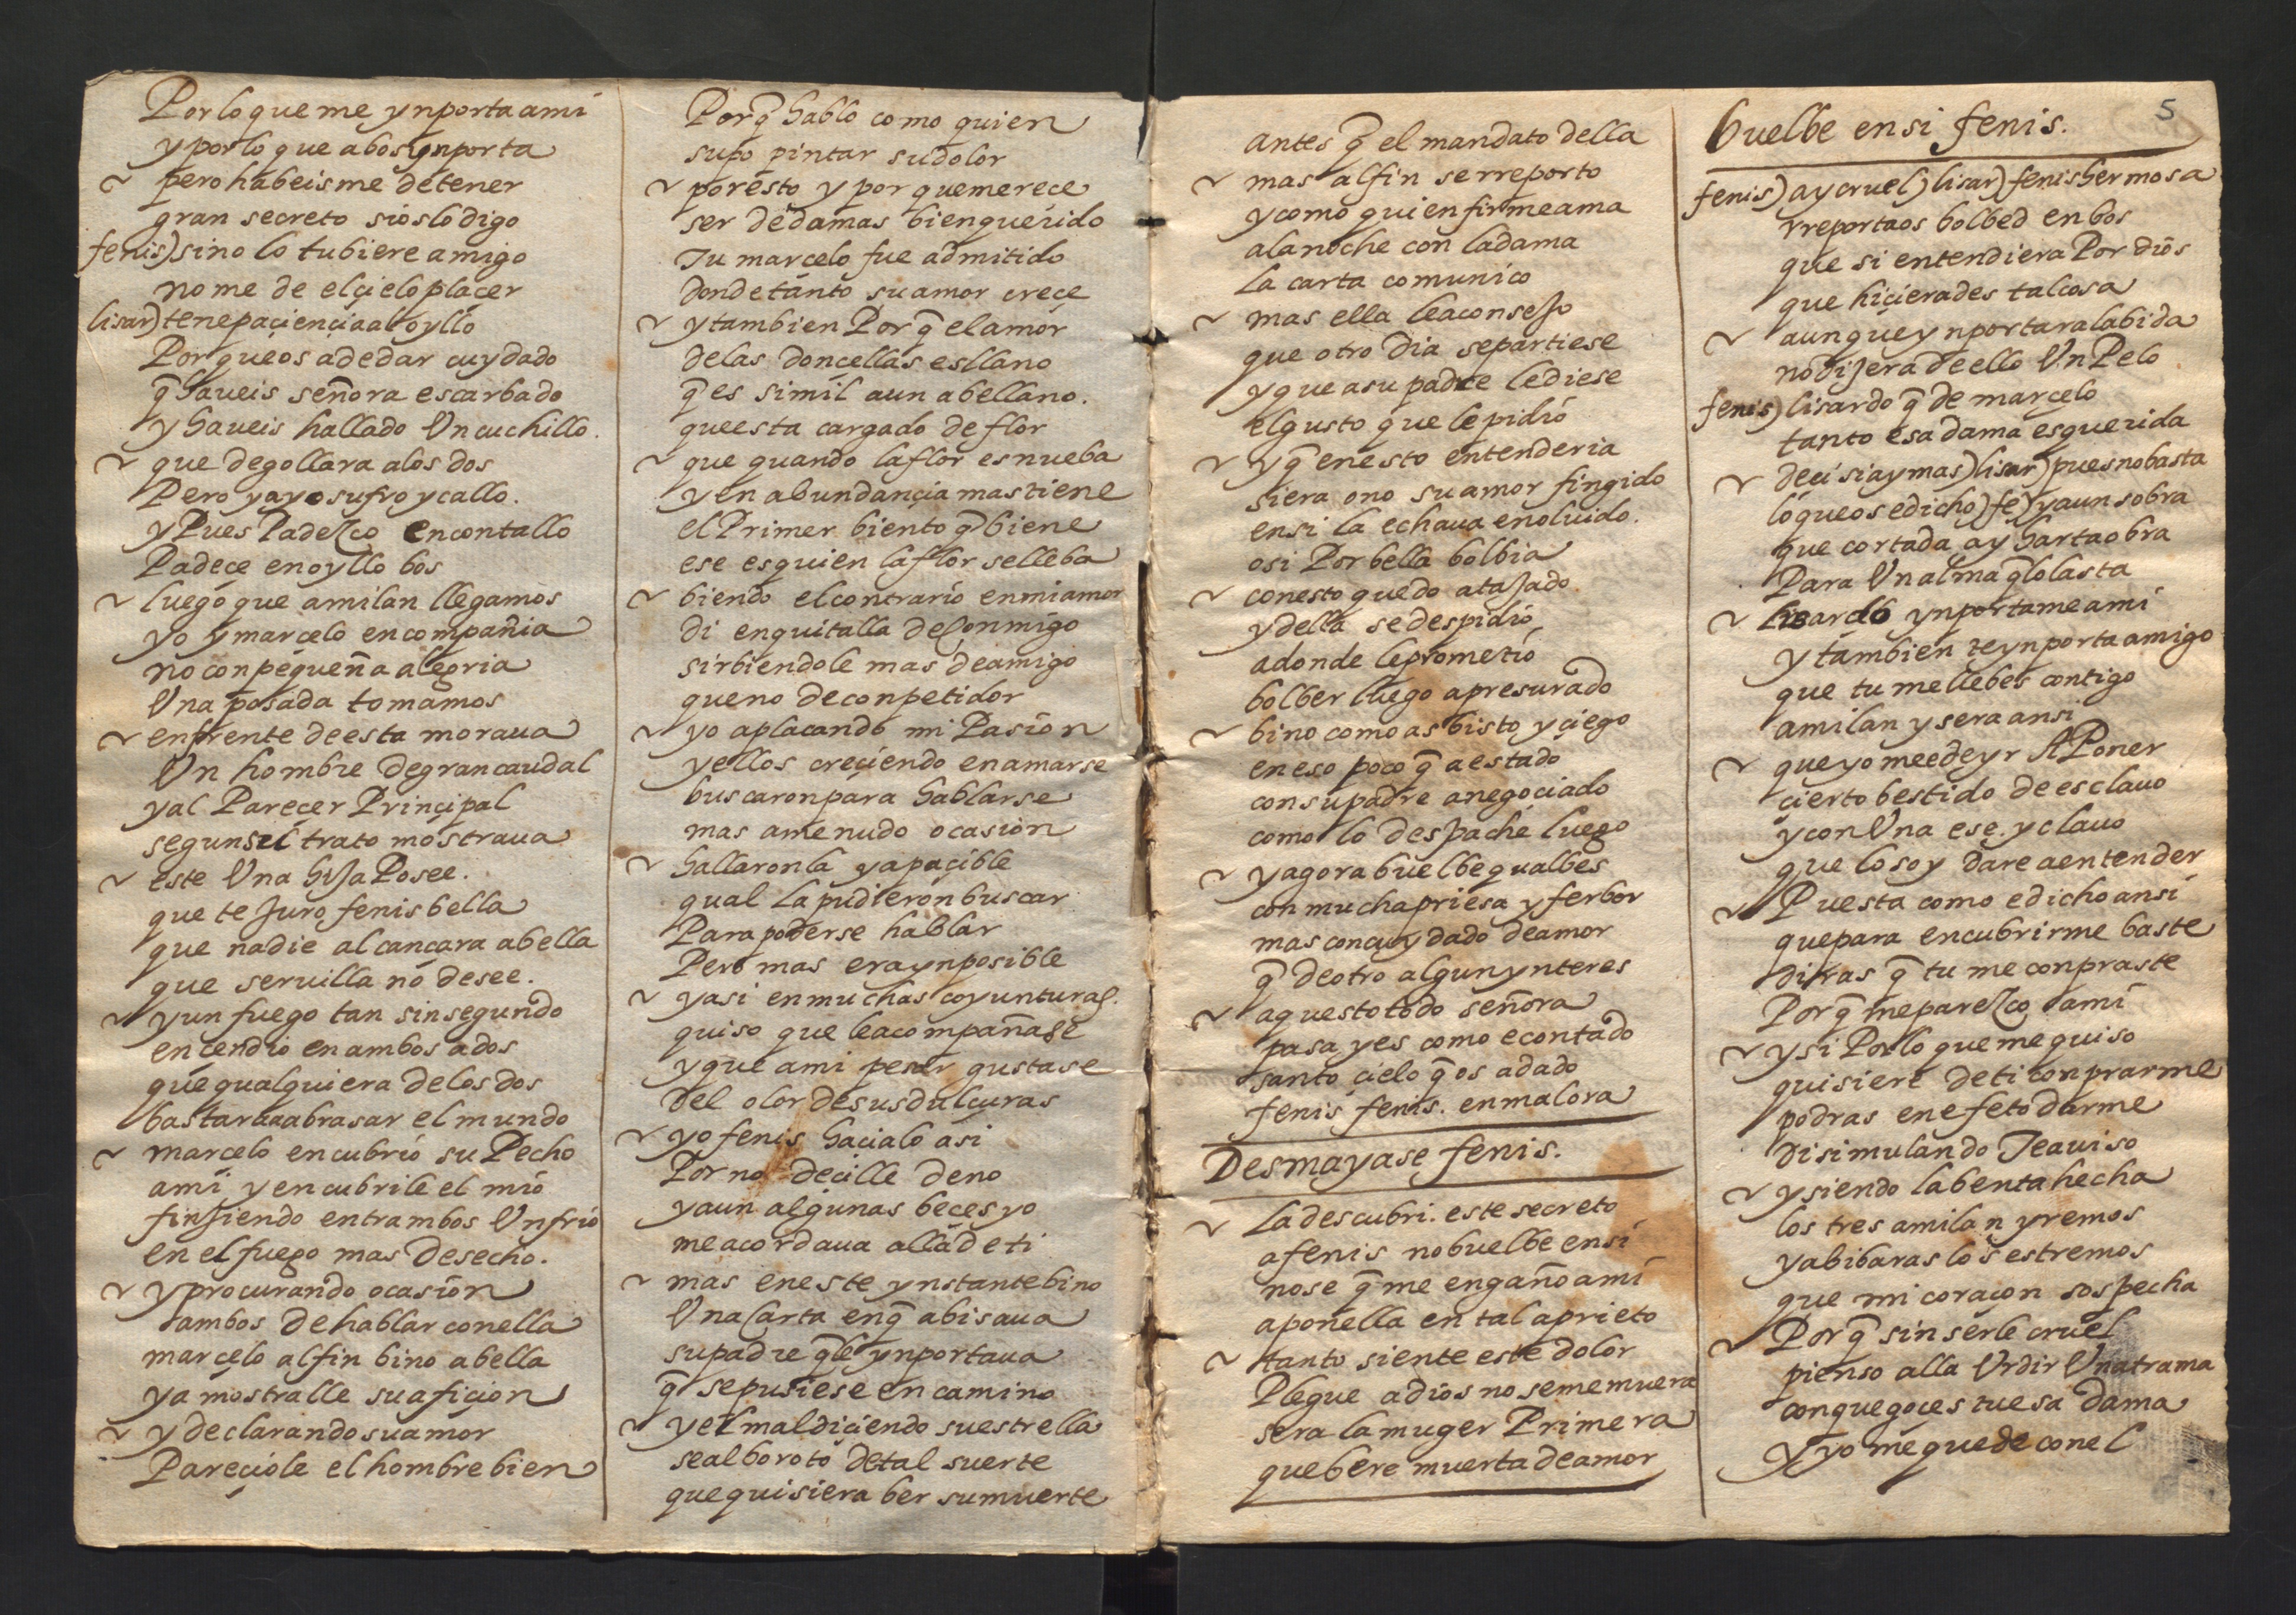 Por lo que me ynporta a mi
y por lo que a bos ynporta
~ pero habeisme de tener
gran secreto si os lo digo
fenis) si no lo tubiere amigo
no me de el çielo plaçer
lisar) tene paçiençia al oyllo
Por que os a de dar cuydado
q̃ haueis señora escarbado
y haueis hallado Un cuchillo.
~ que degollara a los dos
Pero ya yo sufro y callo.
y Pues Padezco en contallo
Padece en oyllo bos
~ luego que a milan llegamos
yo y marcelo en compañia
no con pequeña alegria
Una posada tomamos
~ enfrente de esta moraua
Un hombre de gran caudal
y al Parecer Prinçipal
segun su trato mostraua
~ este Una hija Posee.
que te Juro fenis bella
que nadie alcancara a bella
que seruilla no desee.
~ y un fuego tan sin segundo
encendio en ambos a dos
que qualquiera de los dos
bastara a abrasar el mundo
~ marcelo encubrio su Pecho
a mi y encubrile el mio
finjiendo entrambos Un frio
en el fuego mas desecho.
~ y procurando ocasion
ambos de hablar con ella
marcelo al fin bino a bella
y a mostralle su aficion
~ y declarando su amor
Pareçiole el hombre bien
Porq̃ hablo como quien
supo pintar su dolor
~ por esto y por que merece
ser de damas bien querido
Tu marcelo fue admitido
donde tanto su amor crece
~ y tambien Porq̃ el amor
de las doncellas es llano
q̃ es simil a un abellano.
que esta cargado de flor
~ que quando la flor es nueba
y en abundançia mas tiene
el Primer biento q̃ biene
ese es quien la flor se lleba
~ biendo el contrario en mi amor
di en quitalla de conmigo
sirbiendole mas de amigo
que no de conpetidor
~ yo aplacando mi Pasion
y ellos creçiendo en amarse
buscaron para hablarse
mas a menudo ocasion
~ hallaronla y apaçible
qual la pudieron buscar
Para poderse hablar
Pero mas era ynposible
~ y asi en muchas coyunturas.
quiso que le acompañase
y que a mi pesar gustase
del olor de sus dulçuras
~ yo fenis haçialo asi
Por no decille de no
y aun algunas beces yo
me acordaua alla de ti
~ mas en este ynstante bino
Una Carta en q̃ abisaua
su padre q̃ le ynportaua
q̃ se pusiese en camino
~ y el maldiçiendo su estrella
se alboroto de tal suerte
que quisiera ber su muerte
antes q̃ el mandato della
~ mas al fin se rreporto
y como quien firme ama
a la noche con la dama
la carta comunico
~ mas ella le aconsejo
que otro dia se partiese
y que a su padre le diese
el gusto que le pidio
~ y q̃ en esto entenderia
si era o no su amor fingido
en si la echaua en oluido.
o si Por bella bolbia
~ con esto quedo atajado
y della se despidio
a donde le prometio
bolber luego apresurado
~ bino como as bisto y çiego
en eso poco q̃ a estado
con su padre a negoçiado
como lo despache luego
~ y agora buelbe qual bes
con mucha priesa y ferbor
mas con cuydado de amor
q̃ de otro algun ynteres
~ aquesto todo señora
pasa y es como e contado
santo cielo q̃ os a dado
fenis fenis. en mal ora
Desmayase fenis.
~ La descubri. este secreto
a fenis no buelbe en si
no se q̃ me engaño a mi
a ponella en tal aprieto
~ tanto siente este dolor
Plegue a dios no se me muera
sera la muger Primera
que bere muerta de amor
5
buelbe en si fenis.
fenis) ay cruel) lisar) fenis hermosa
rreportaos bolbed en bos
que si entendiera Por dios
que hiçierades tal cosa
~ aunque ynportara la bida
no dijera de ello Un Pelo
fenis) lisardo q̃ de marcelo
tanto esa dama es querida
~ deci si ay mas) lisar) pues no basta
lo que os e dicho) fe) y aun sobra
que cortada ay harta obra
Para Un alma q̃ lo lasta
~ Lisardo ynportame a mi
y tambien te ynporta amigo
que tu me llebes contigo
a milan y sera ansi
~ que yo me e de yr A Poner
cierto bestido de esclauo
y con Una ese. y clauo
que lo soy dare a entender
~ Puesta como e dicho ansi
que para encubrirme baste
diras q̃ tu me conpraste
Porq̃ me parezco a mi
~ y si Por lo que me quiso
quisiere de ti conprarme
podras en efeto darme
disimulando Te auiso
~ y siendo la benta hecha
los tres a milan yremos
y abibaras los estremos
que mi coraçon sospecha
~ Porq̃ sin serle cruel
pienso alla Urdir Una trama
con que goces tu esa dama
y yo me quede con el